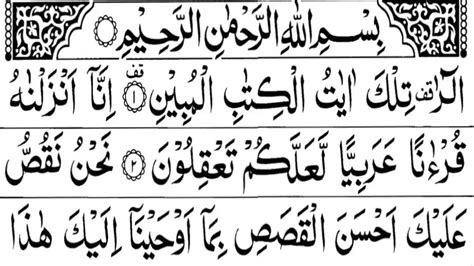 بِسْمِ اللّٰهِ الرَّحْمٰنِ الرَّحِيْمِ
الٓرٰ قف تِلْكَ اٰيٰتُ الْكِتٰبِ الْمُبِيْنِ قف ﴿۱﴾ اِنَّاۤ اَنْزَلْنٰهُ
قُرْءٰنًا عَرَبِيًّا لَّعَلَّكُمْ تَعْقِلُوْنَ ﴿۲﴾ نَحْنُ نَقُصُّ
عَلَيْكَ اَحْسَنَ الْقَصَصِ بِمَاۤ اَوْحَيْنَاۤ اِلَيْكَ هٰذَا